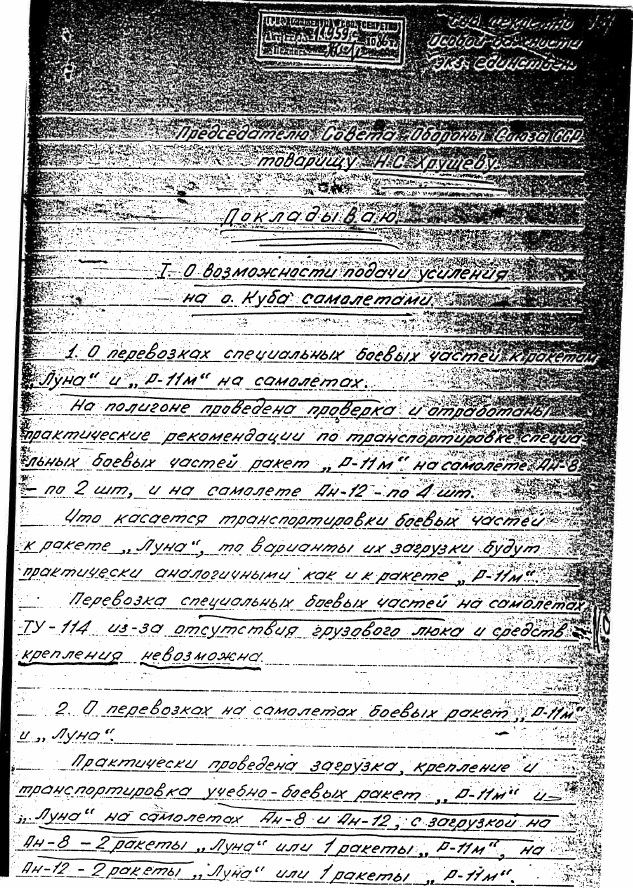 Особой важности
экз. единствен.
Председателю Совета Обороны Союза ССР
товарищу Н.С. Хрущеву.
Докладываю:
I. О возможности подачи усиления
на о. Куба самолетами.
1. О перевозках специальных боевых частей к ракетам
„Луна“ и „Р-11м“ на самолетах.
На полигоне проведена проверка и отработаны
практические рекомендации по транспортировке специа-
льных боевых частей ракет „Р-11м“ на самолете Ан-8
– по 2 шт, и на самолете Ан-12 – по 4 шт.
Что касается транспортировки боевых частей
к ракете „Луна“, то варианты их загрузки будут
практически аналогичными как и к ракете „Р-11м“.
Перевозка специальных боевых частей на самолетах
ТУ-114 из-за отсутствия грузового люка и средств
крепления невозможна
2. О перевозках на самолетах боевых ракет „Р-11м“
и „Луна“.
Практически проведена загрузка, крепление и
транспортировка учебно-боевых ракет „Р-11м“ и
„Луна“ на самолетах Ан-8 и Ан-12, с загрузкой на
Ан-8 – 2 ракеты „Луна“ или 1 ракеты „Р-11м“, на
Ан-12 – 2 ракеты „Луна“ или 1 ракеты „Р-11м“.